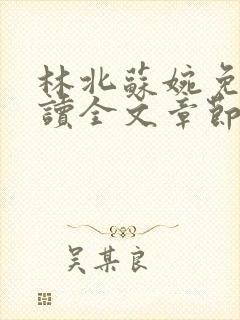 林北蘇婉免
讀全文章節
吴某良